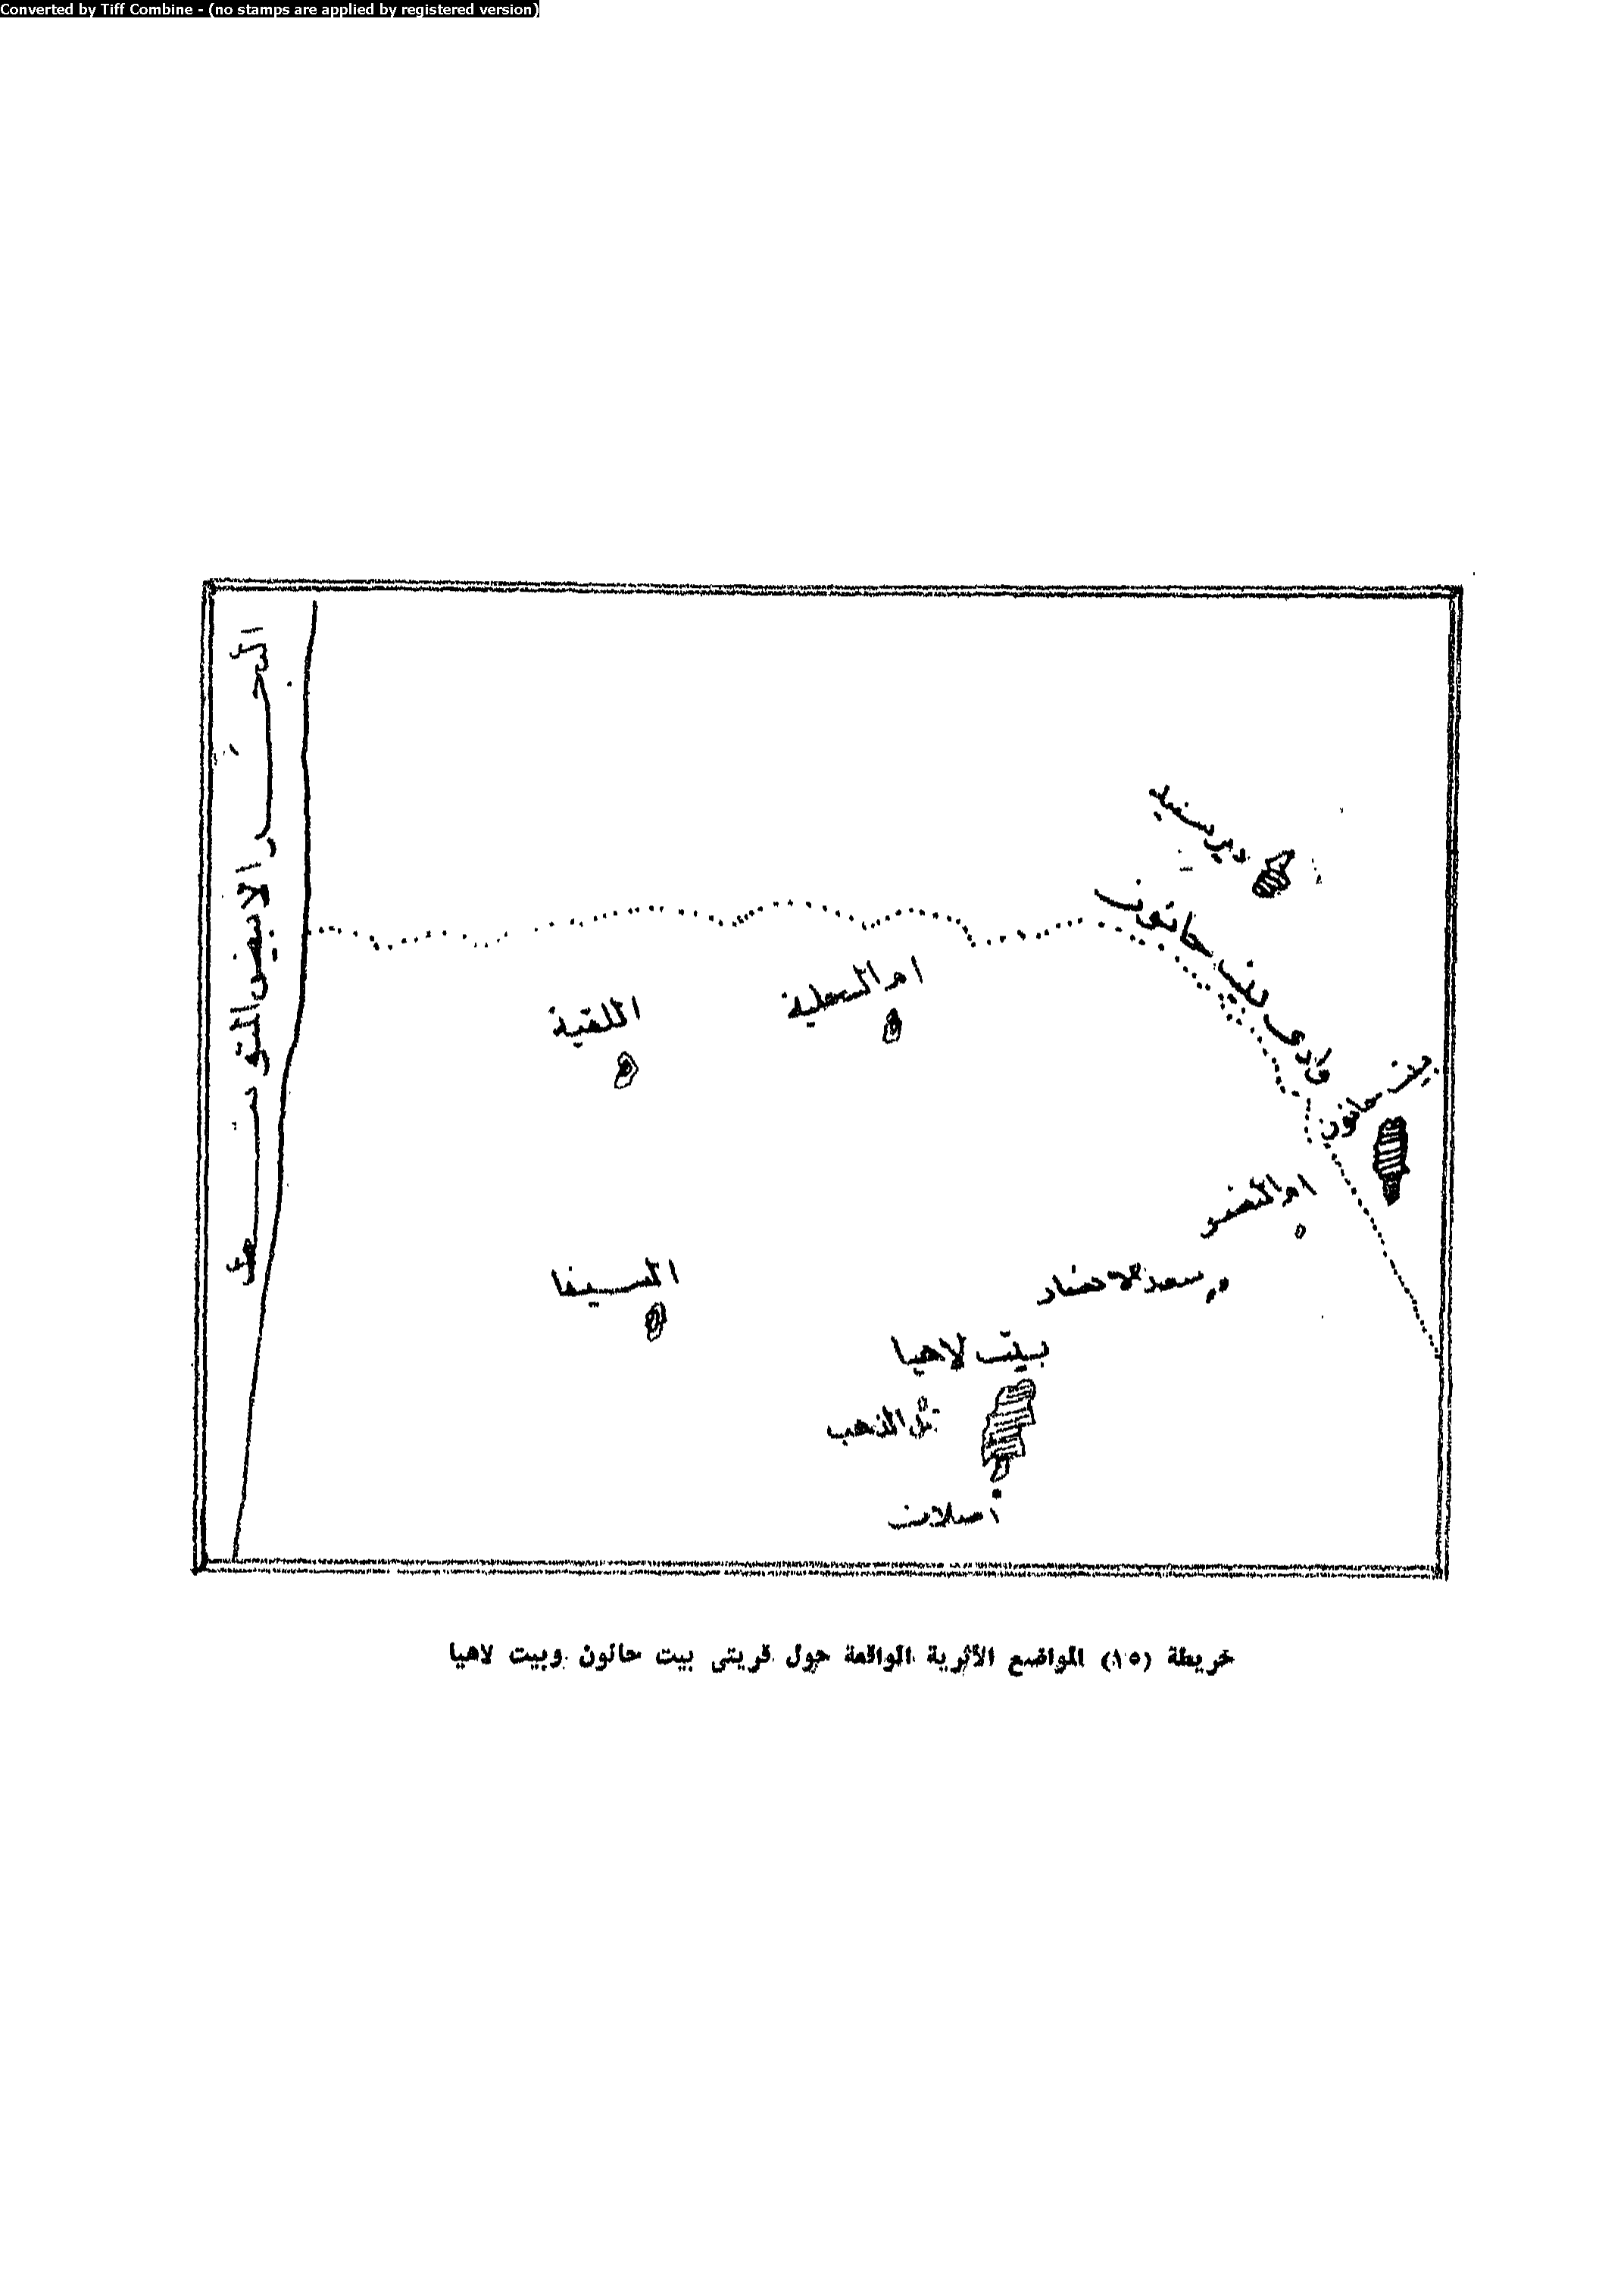 Converted by Tiff Combine - (no stamps are applied by registered version)
البحر الابيض المتوسط
دير سنيد
وادى بيت حانون
ام
اللقية
بيت حانون
ام
السيفا
سعد الانصار
بيت لاهيا
تل الذهب
اصلان
خريطة (١٥) المواضع الأثرية الواقعة حول قريتى بيت حانون وبيت لاهيا